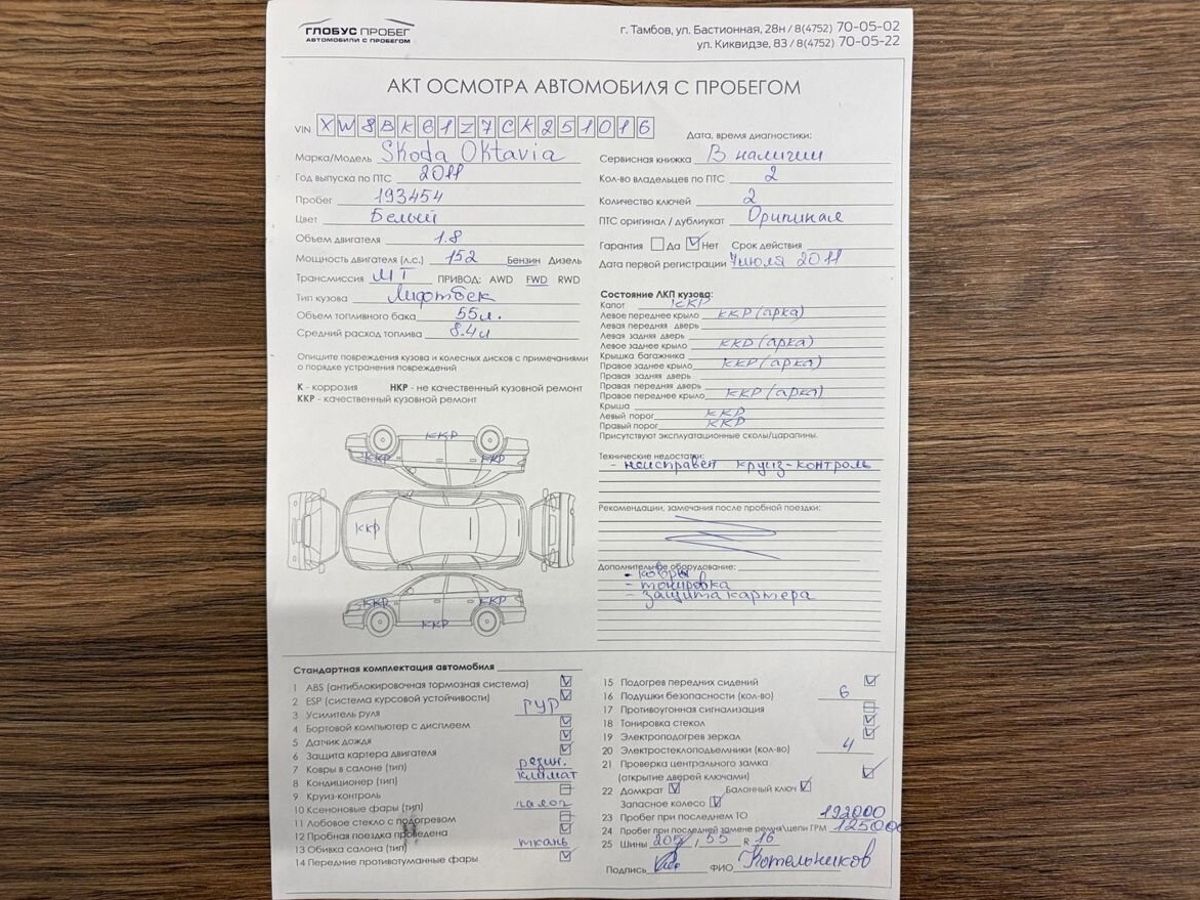 ГЛОБУС ПРОБЕГ
АВТОМОБИЛИ С ПРОБЕГОМ
г. Тамбов, ул. Бастионная, 28н / 8(4752) 70-05-02
ул. Киквидзе, 83 / 8(4752) 70-05-22
АКТ ОСМОТРА АВТОМОБИЛЯ С ПРОБЕГОМ
VIN XW8BK61Z7CK251016
Марка/Модель Skoda Oktavia
Год выпуска по ПТС 2011
Пробег 193454
Цвет Белый
Объем двигателя 1.8
Мощность двигателя (л.с.) 152 Бензин Дизель
Трансмиссия МТ ПРИВОД: AWD FWD RWD
Тип кузова Лифтбек
Объем топливного бака 55л.
Средний расход топлива 8.4л
Опишите повреждения кузова и колесных дисков с примечаниями
о порядке устранения повреждений
К - коррозия НКР - не качественный кузовной ремонт
ККР - качественный кузовной ремонт
ККР
ККР ККР
ККР
ККР ККР
ККР
Дата, время диагностики:
Сервисная книжка В наличии
Кол-во владельцев по ПТС 2
Количество ключей 2
ПТС оригинал / дубликат Оригинал
Гарантия Да Нет Срок действия
Дата первой регистрации 7 июля 2011
Состояние ЛКП кузова:
Капот ККР
Левое переднее крыло ККР (арка)
Левая передняя дверь
Левая задняя дверь
Левое заднее крыло ККР (арка)
Крышка багажника
Правое заднее крыло ККР (арка)
Правая задняя дверь
Правая передняя дверь
Правое переднее крыло ККР (арка)
Крыша
Левый порог ККР
Правый порог ККР
Присутствуют эксплуатационные сколы/царапины.
Технические недостатки:
- неисправен круиз-контроль
Рекомендации, замечания после пробной поездки:
Дополнительное оборудование:
- ковры
- тонировка
- защита картера
Стандартная комплектация автомобиля
1 ABS (антиблокировочная тормозная система)
2 ESP (система курсовой устойчивости)
3 Усилитель руля ГУР
4 Бортовой компьютер с дисплеем
5 Датчик дождя
6 Защита картера двигателя
7 Ковры в салоне (тип) резин.
8 Кондиционер (тип) климат
9 Круиз-контроль
10 Ксеноновые фары (тип) галог
11 Лобовое стекло с подогревом
12 Пробная поездка проведена
13 Обивка салона (тип) ткань
14 Передние противотуманные фары
15 Подогрев передних сидений
16 Подушки безопасности (кол-во) 6
17 Противоугонная сигнализация
18 Тонировка стекол
19 Электроподогрев зеркал
20 Электростеклоподъемники (кол-во) 4
21 Проверка центрального замка
(открытие дверей ключами)
22 Домкрат Балонный ключ
Запасное колесо
23 Пробег при последнем ТО 192000
24 Пробег при последней замене ремня\цепи ГРМ 125000
25 Шины 205 / 55 R 16
Подпись ФИО Котельников